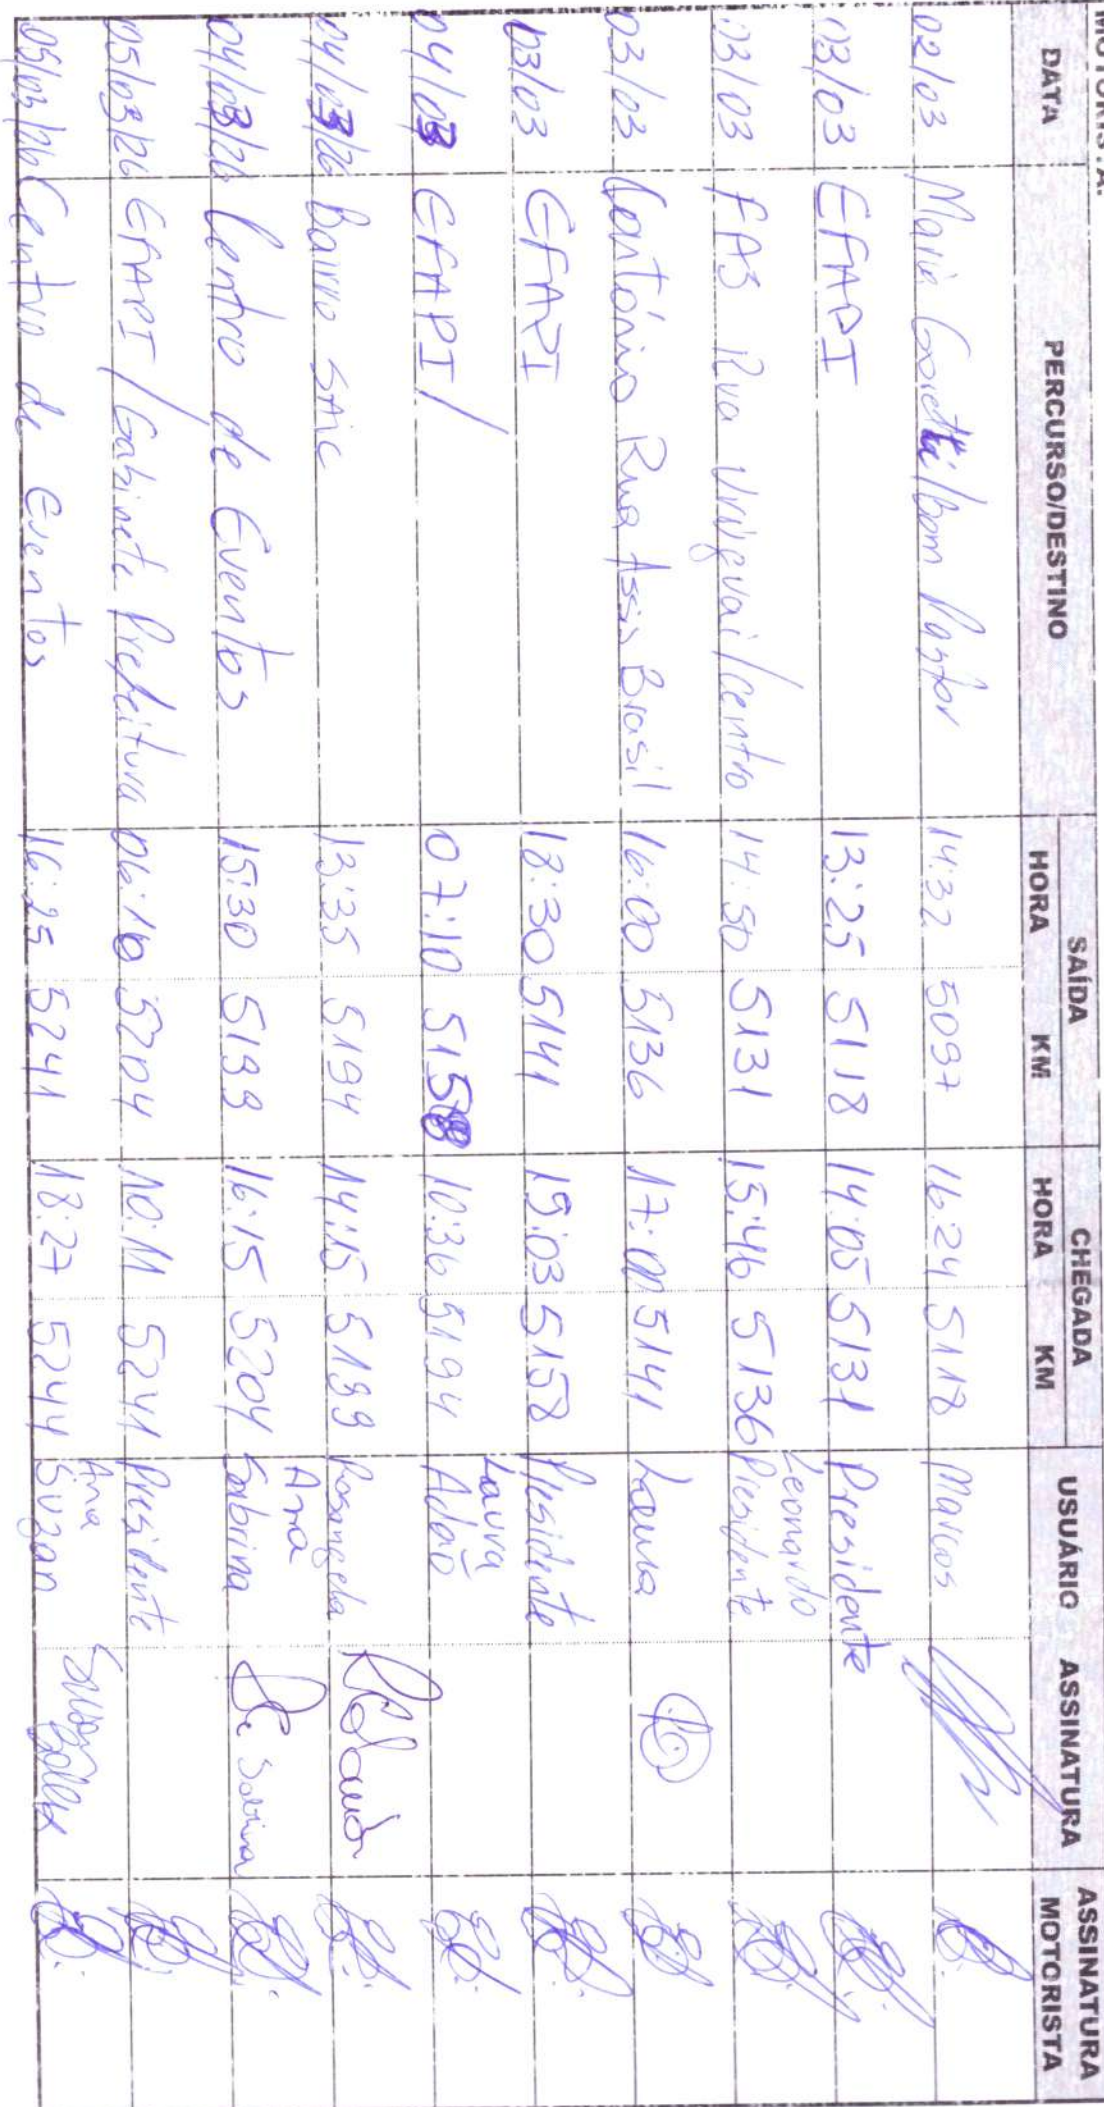 MOTORISTA:
DATA PERCURSO/DESTINO SAÍDA CHEGADA USUÁRIO ASSINATURA ASSINATURA MOTORISTA
HORA KM HORA KM
02/03 Maria Goretti/Bom Pastor 14:32 5097 16:24 5118 Marcos
03/03 EFAPI 13:25 5118 14:05 5131 Presidente
03/03 FAS Rua Uruguai/centro 14:50 5131 15:46 5136 Leonardo Presidente
03/03 Cartório Rua Assis Brasil 16:00 5136 17:00 5141 Laura
03/03 EFAPI 18:30 5141 19:03 5158 Presidente
04/03 EFAPI/ 07:10 5158 10:36 5194 Laura Adão
04/03/26 Bairro SAIC 13:35 5194 14:15 5199 Rosangela
04/03/26 Centro de Eventos 15:30 5199 16:15 5204 Ana Sabrina Sabrina
05/03/26 EFAPI/Gabinete Prefeitura 06:10 5204 10:11 5241 Presidente
05/03/26 Centro de Eventos 16:25 5241 18:27 5244 Ana Suzan